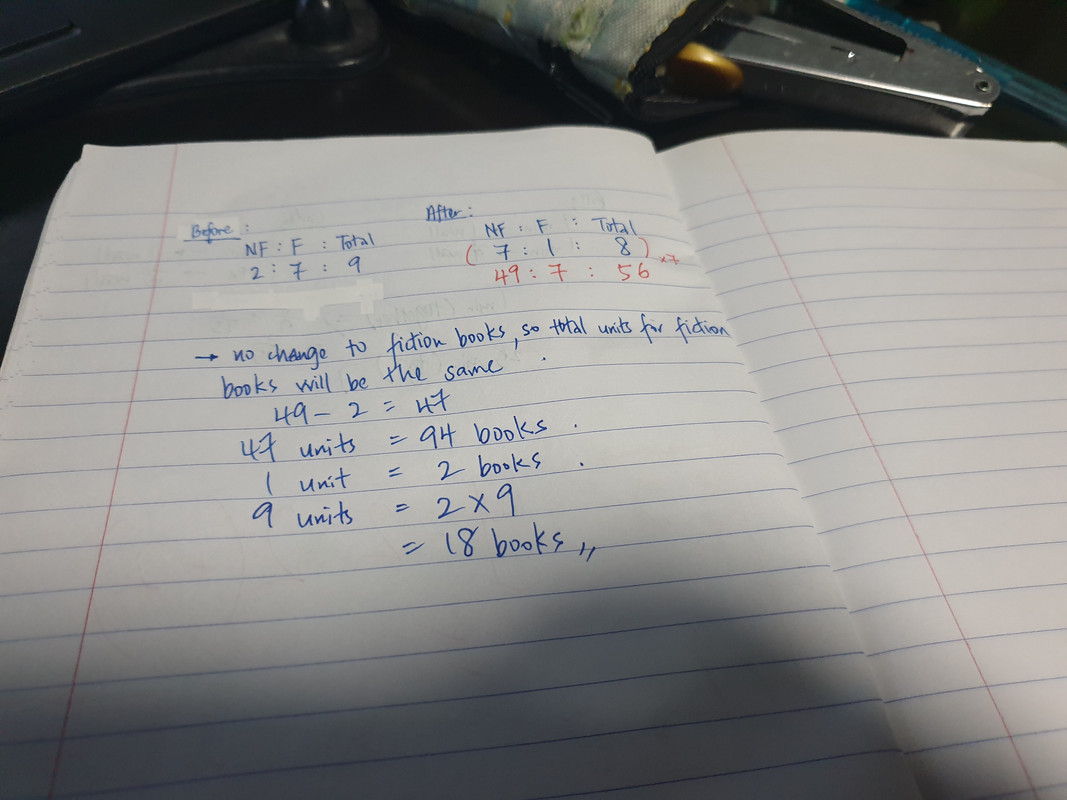 Before :
NF : F : Total
2 : 7 : 9
After :
NF : F : Total
( 7 : 1 : 8 ) ×7
49 : 7 : 56
→ no change to fiction books, so total units for fiction
books will be the same.
49 - 2 = 47
47 units = 94 books.
1 unit = 2 books.
9 units = 2 × 9
= 18 books,,